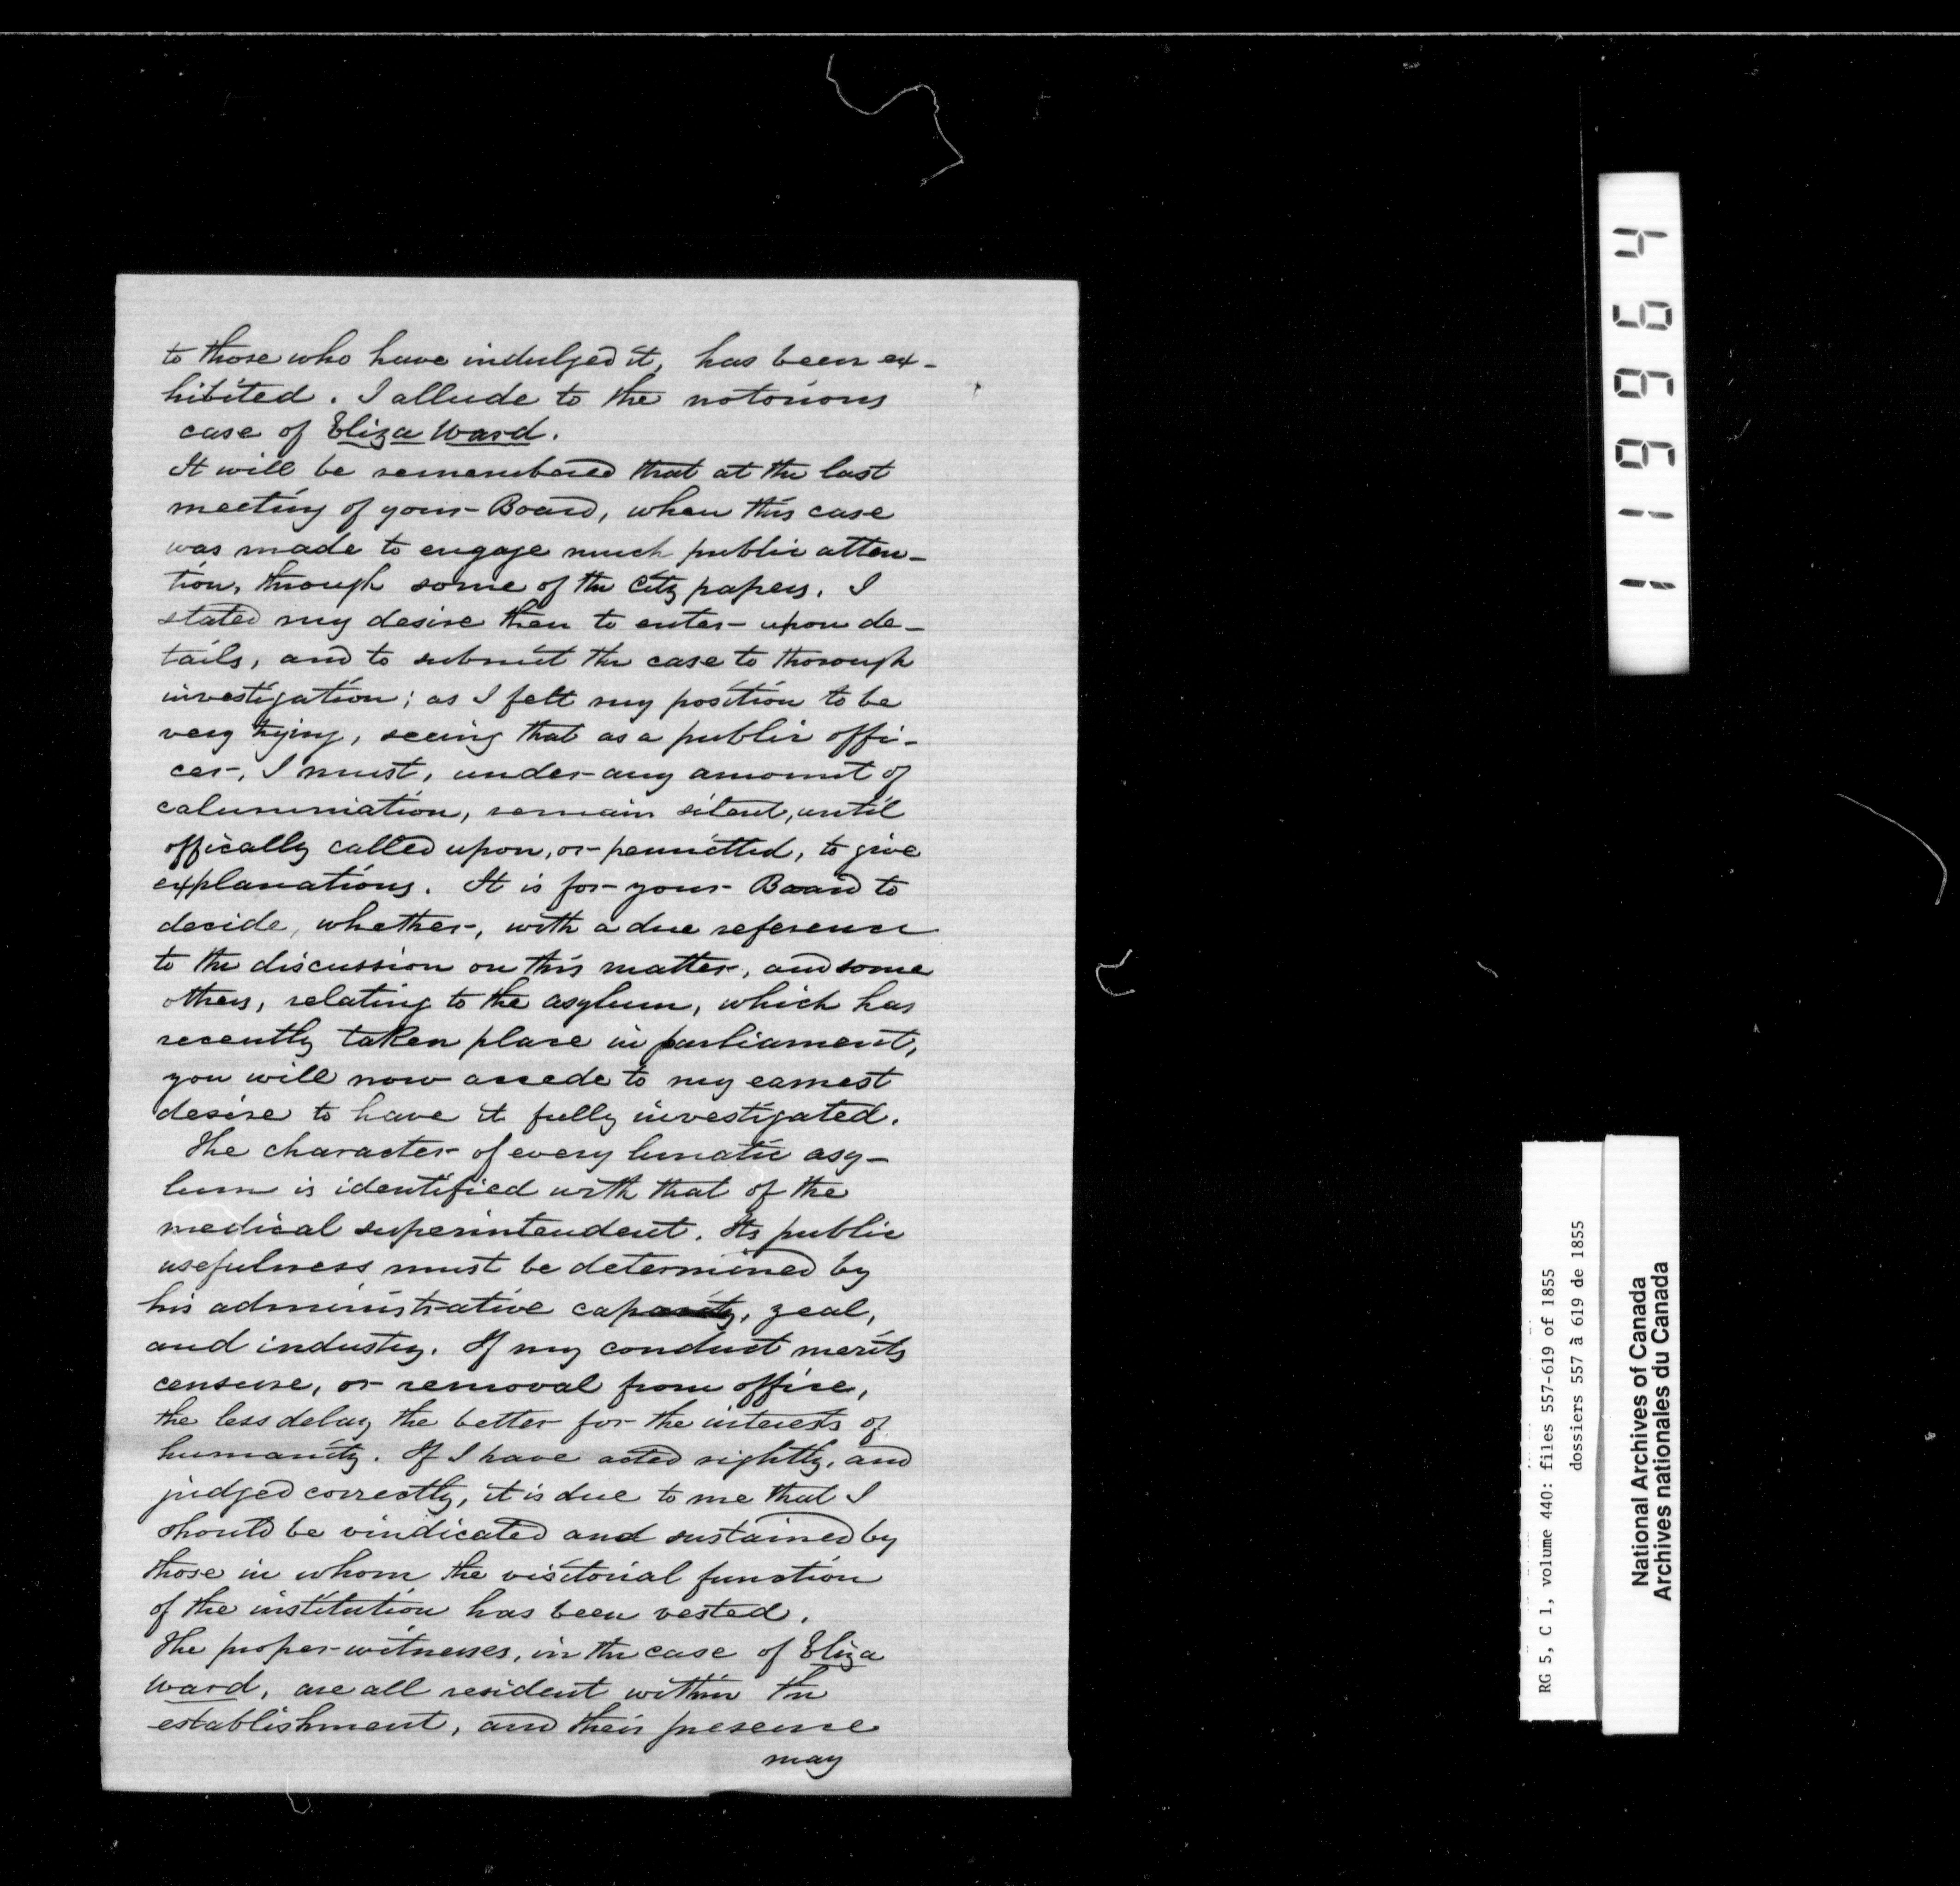 to those who have indulged it, has been ex-
hibited. I allude to the notorious
case of Eliza Ward.
It will be remembered that at the last
meeting of your Board, when this case
was made to engage much public atten-
tion, through some of the City papers, I
stated my desire then to enter upon de-
tails, and to submit the case to thorough
investigation; as I felt my position to be
very trying, seeing that as a public offi-
cer, I must, under any amount of
calumniation, remain silent, until
offically called upon, or permitted, to give
explanations. It is for your Board to
decide, whether, with a due reference
to the discussion on this matter, and some
others, relating to the asylum, which has
recently taken place in parliament,
you will now accede to my earnest
desire to have it fully investigated.
The character of every lunatic asy-
lum is identified with that of the
medical superintendent. Its public
usefulness must be determined by
his administrative capacity, zeal,
and industry. If my conduct merits
censure, or removal from office,
the less delay the better for the interests of
humanity. If I have acted rightly, and
judged correctly, it is due to me that I
should be vindicated and sustained by
those in whom the visitorial function
of the institution has been vested.
The proper witnesses, in the case of Eliza
Ward, are all resident within the
establishment, and their presence
may
119964
RG 5, C 1, volume 440: files 557-619 of 1855
dossiers 557 à 619 de 1855
National Archives of Canada
Archives nationales du Canada